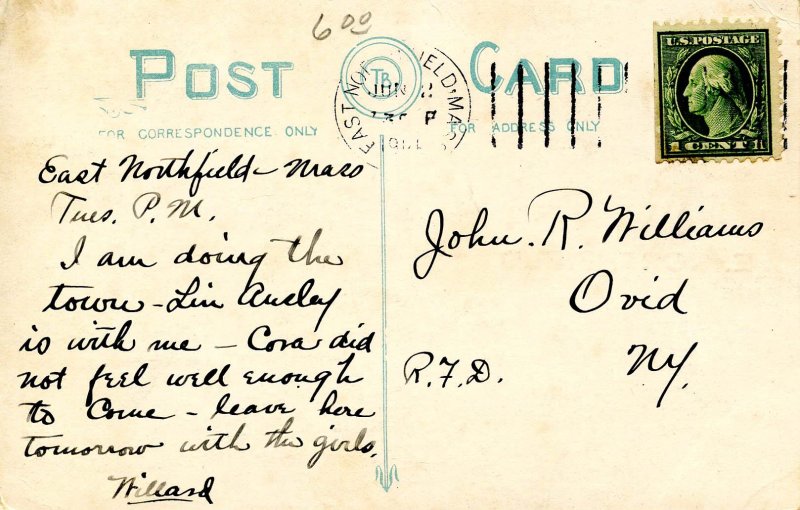 6 00
POST CARD
TB
EAST NO IELD MAS
JUN 2
P
U.S. POSTAGE
1 CENT 1
FOR CORRESPONDENCE ONLY
FOR ADDRESS ONLY
East Northfield - Mass
Tues. P.M.
I am doing the
town - Lin Ansley
is with me - Cora did
not feel well enough
to Come - leave here
tomorrow with the girls.
Willard
John. R. Williams
Ovid
R.F.D.
NY.